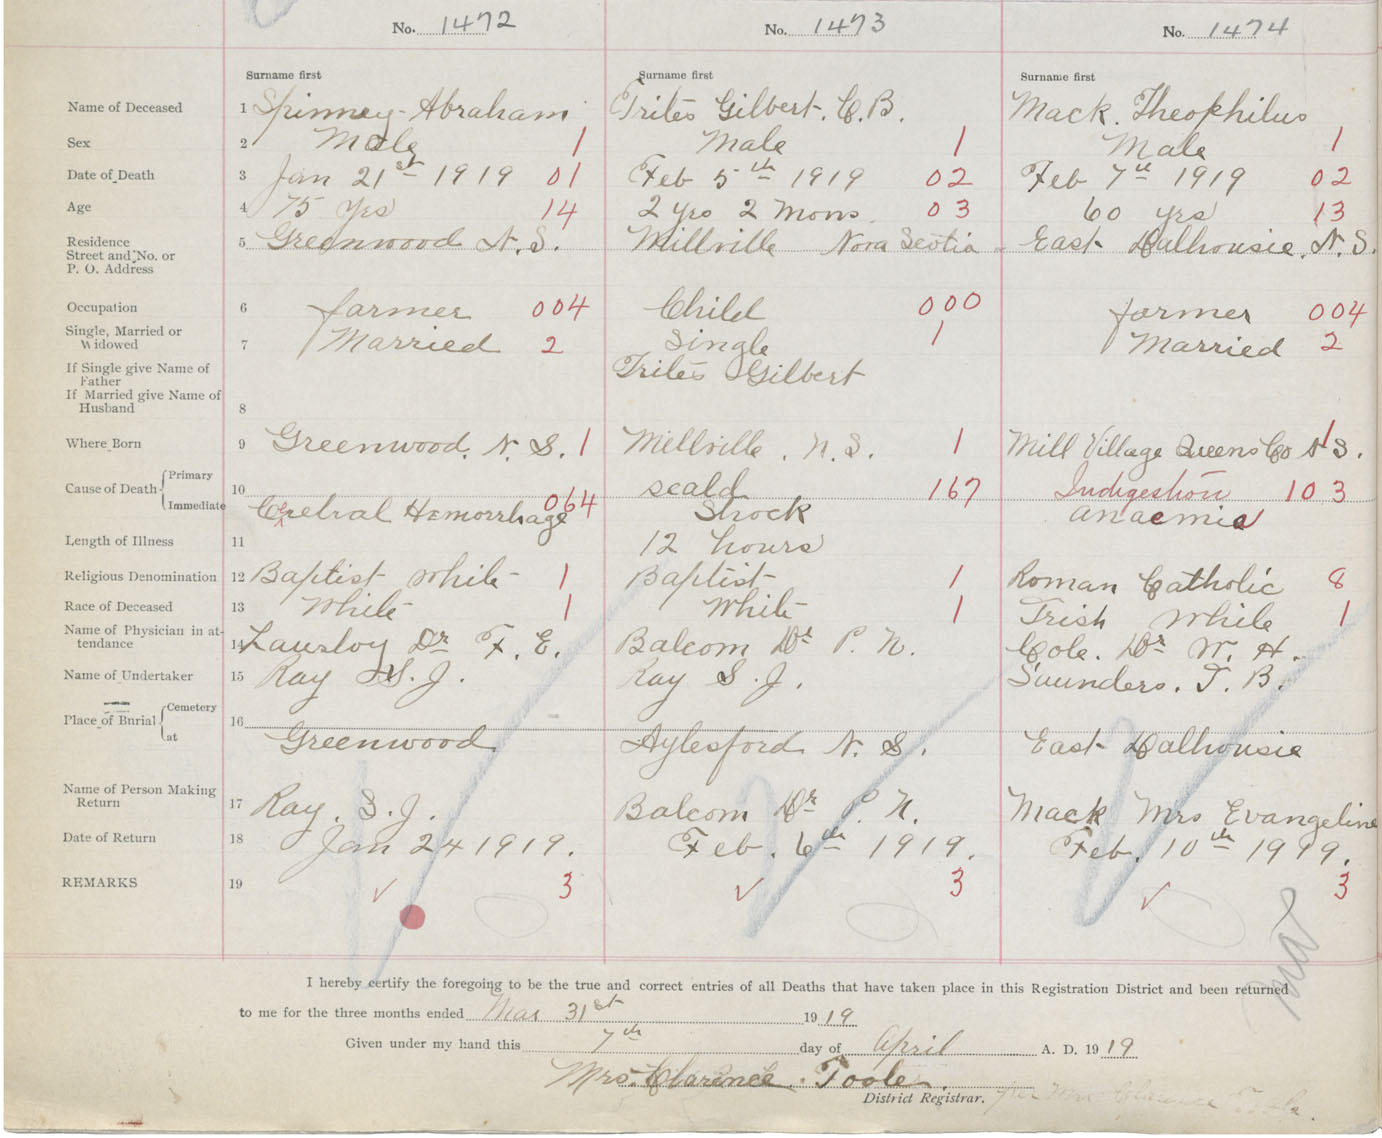 No. 1472 No. 1473 No. 1474
Surname first Surname first Surname first
Name of Deceased 1 Spinney Abraham Trites Gilbert. C. B. Mack. Theophilus
Sex 2 Male 1 Male 1 Male 1
Date of Death 3 Jan 21st 1919 01 Feb 5th 1919 02 Feb 7th 1919 02
Age 4 75 yrs 14 2 yrs 2 Mons. 03 60 yrs 13
Residence 5 Greenwood N.S. Millville Nova Scotia East Dalhousie. N.S.
Street and No. or
P. O. Address
Occupation 6 farmer 004 Child 000 farmer 004
Single, Married or
Widowed 7 Married 2 Single 1 Married 2
If Single give Name of
Father Trites Gilbert
If Married give Name of
Husband 8
Where Born 9 Greenwood. N. S. 1 Millville. N.S. 1 Mill Village Queens Co N S. 1
Cause of Death Primary 10 scald 167 Indigestion 103
Immediate Cerebral Hemorrhage 064 Shock anaemia
Length of Illness 11 12 hours
Religious Denomination 12 Baptist White 1 Baptist 1 Roman Catholic 8
Race of Deceased 13 White 1 White 1 Irish White 1
Name of Physician in at-
tendance 14 Dr F. E. Balcom Dr P. N. Cole. Dr W. H.
Name of Undertaker 15 Ray S. J. Ray S. J. Saunders. T. B.
Place of Burial Cemetery 16
at Greenwood Aylesford N. S. East Dalhousie
Name of Person Making
Return 17 Ray. S. J. Balcom Dr P. N. Mack Mrs Evangeline
Date of Return 18 Jan 24 1919. Feb. 6th 1919. Feb. 10th 1919.
REMARKS 19 3 3 3
I hereby certify the foregoing to be the true and correct entries of all Deaths that have taken place in this Registration District and been returned
to me for the three months ended Mar 31st 1919
Given under my hand this 7th day of April A. D. 1919
Mrs. Clarence Toole.
District Registrar. per Mrs Clarence Toole.